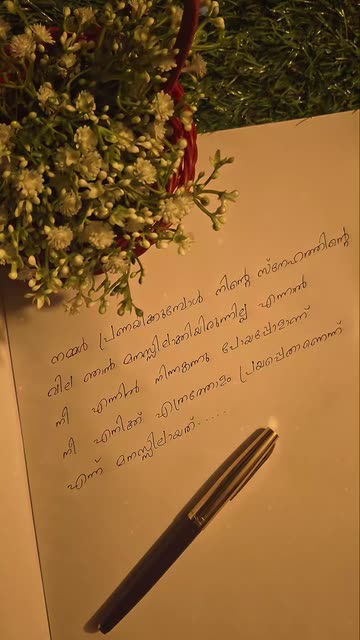 നമ്മൾ പ്രണയിക്കുമ്പോൾ നിന്റെ സ്നേഹത്തിന്റെ
വില ഞാൻ മനസ്സിലാക്കിയിരുന്നില്ല എന്നാൽ
നീ എന്നിൽ നിന്നകന്നു പോയപ്പോളാണ്
നീ എനിക്ക് എന്തുമാത്രം പ്രിയപ്പെതാണെന്ന്
എന്ന് മനസ്സിലായത്.....